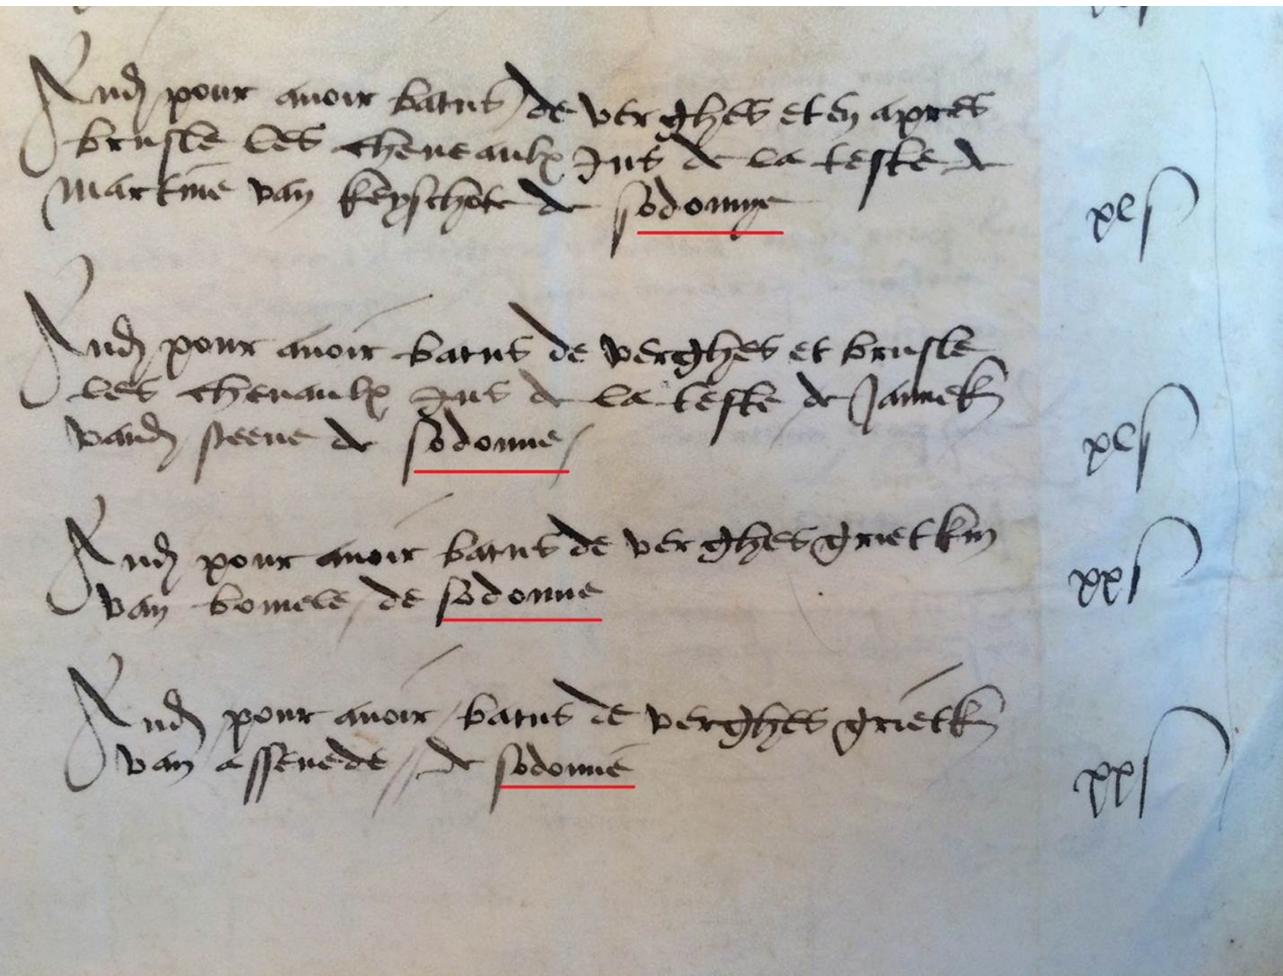 Audit pour avoir batus de verghes et en apres
brusle les cheveaulx jus de la teste de
Martine van Keyschote de sodomye xl s
Audit pour avoir batus de verghes et brusle
les chevaulx jus de la teste de Jannek
vand steene de sodomie xl s
Audit pour avoir batus de verghes grietkin
van bomele de sodomie xx s
Audit pour avoir batus de verghes grietk
van assenede de sodomie xx s